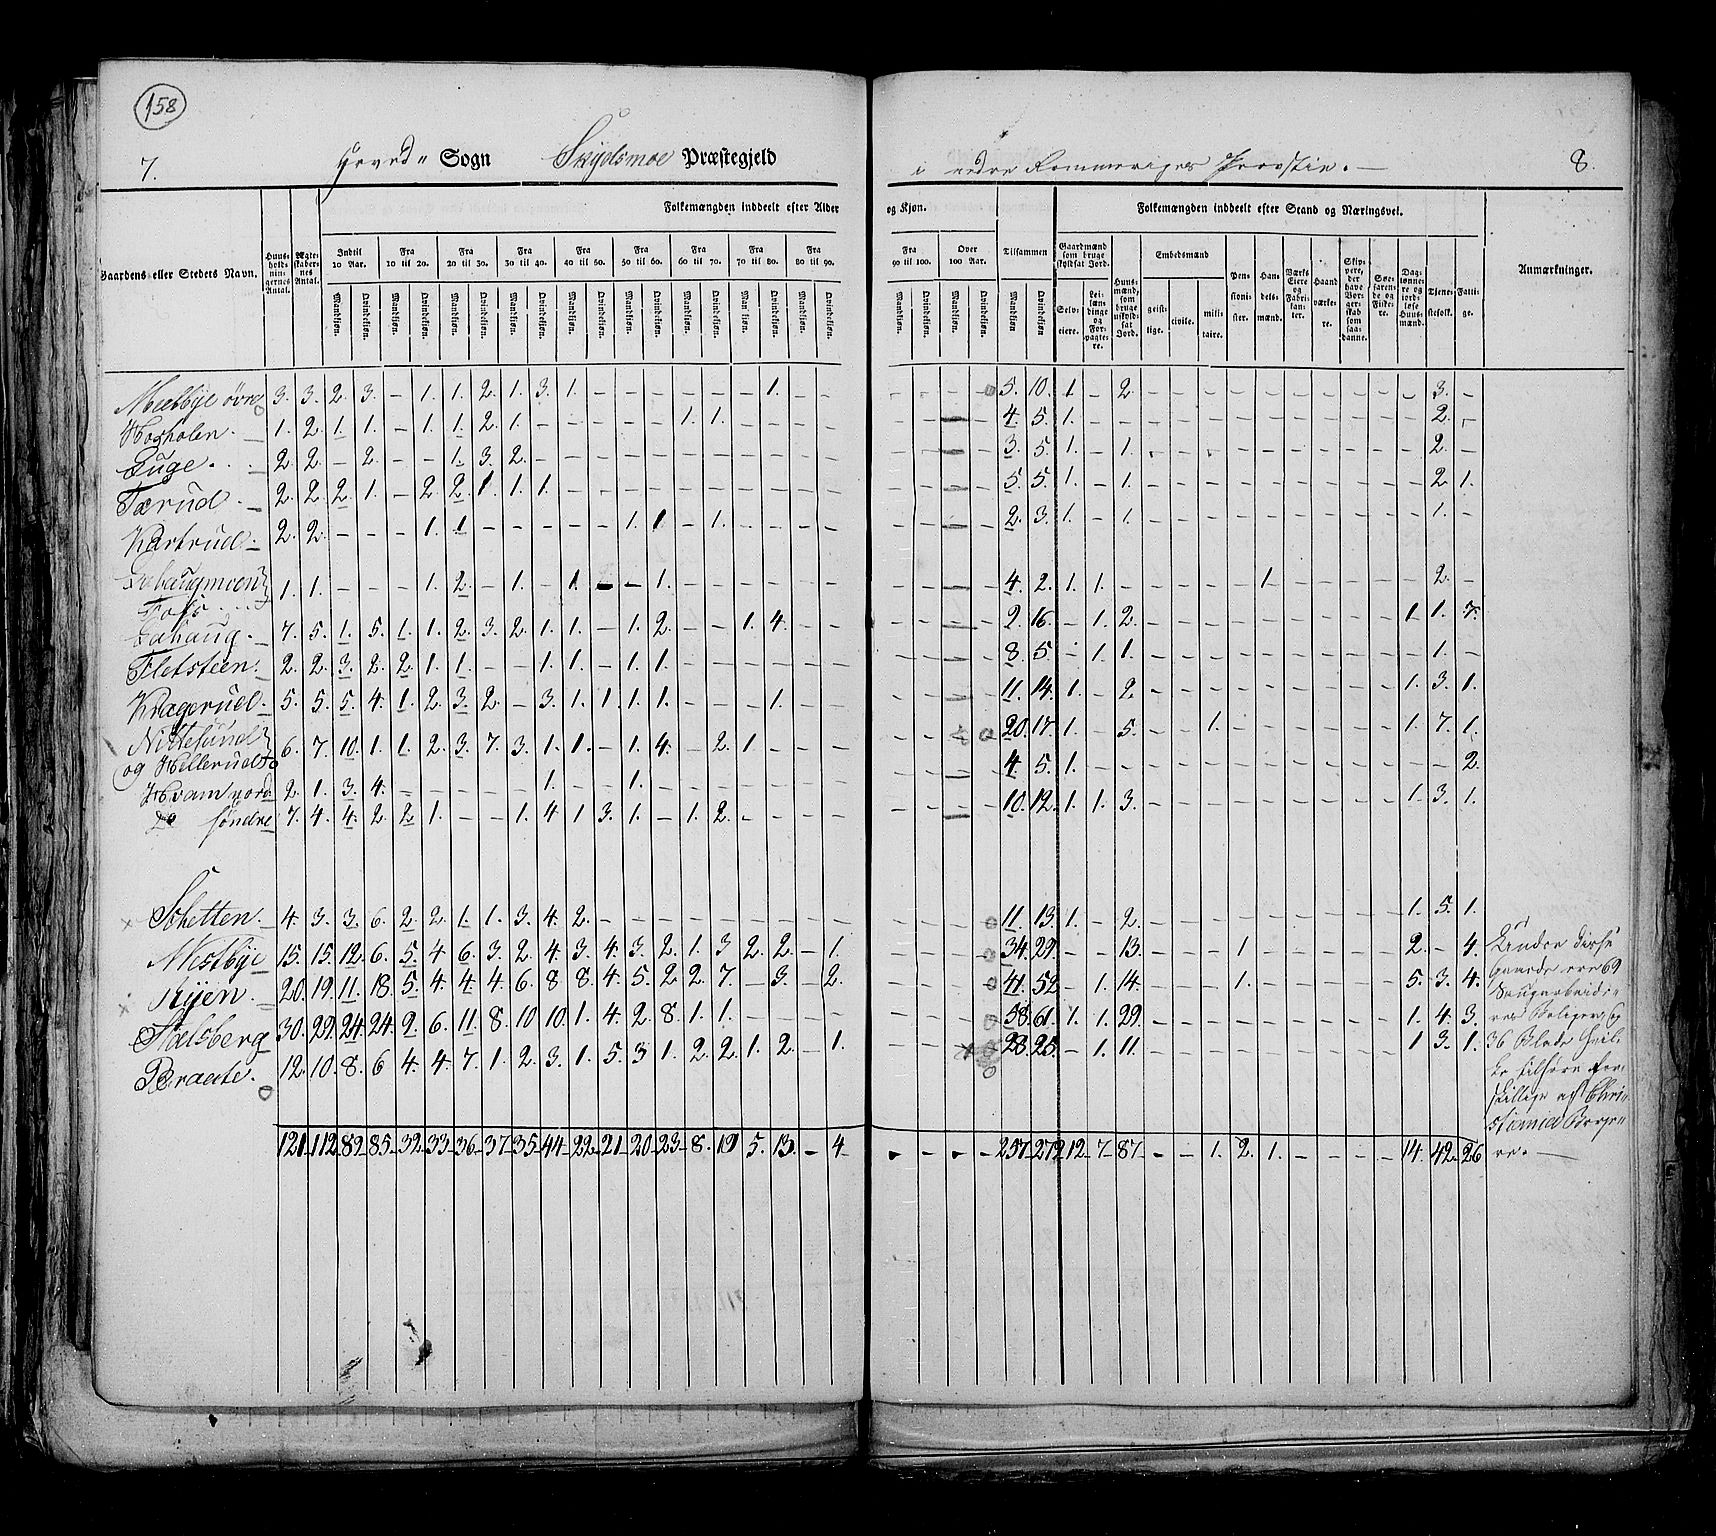 158
7. Hoved- Sogn Skydsmoe Præstegjeld
i nedre Rommeriges Provstie. 8.
Folkemængden inddeelt efter Alder og Kjøn. Folkemængden inddeelt efter Stand og Næringsvei.
Gaardens eller Stedets Navn. Huusholdningernes Antal. Ægteskabernes Antal.
Indtil 10 Aar. Fra 10 til 20. Fra 20 til 30. Fra 30 til 40. Fra 40 til 50. Fra 50 til 60. Fra 60 til 70. Fra 70 til 80. Fra 80 til 90. Fra 90 til 100. Over 100 Aar. Tilsammen
Mandkjøn. Qvindekjøn.
Gaardmænd som bruge skyldsat Jord. Selveiere. Leilændinge og Forpagtere. Huusmænd, som bruge uskyldsat Jord. Embedsmænd geistlige. civile. militaire. Pensionister. Handelsmænd. Værks Eiere og Fabrikanter. Haandværkere. Skippere, der have Borgerskab som saadanne. Søefarende og Fiskere. Daglønnere og jordløse Huusmænd. Tjenestefolk. Fattige. Anmærkninger.
Melbye øvre 3. 3. 2. 3. – 1. 1. 2. 1. 3. 1. – – – – – – 1. – – – – – – 5. 10. 1 – 2. – – – – – – – – – – 3. –
Hosholen. 1. 2. 1. 1. – 1. 1. 2. 1. – – – – – 1. 1. – – – – – – – – 4. 5. 1. – – – – – – – – – – – – 2. –
Ruge. 2. 2. – 2. – – 1. 3. 2. – – – – – – – – – – – – – – – 3. 5. 1. – 1. – – – – – – – – – – 2. –
Tærud. 2. 2. 2. 1. – 2. 2. 1 1. 1. – – – – – – – – – – – – – – 5. 5. 1. – 1. – – – – – – – – – – 2 1.
Kartrud. 2. 2. – – – 1. 1. – – – – – 1. 1. – 1. – – – – – – – – 2. 3. 1. – 1. – – – – – – – – – – 1. –
Foss. 1. 1. – – – 1. 2. – 1. – 1. – – 1. – – – – – – – – – – 4. 2. 1. 1. – – – – – 1 – – – – – 2. –
Fahaug. 7. 5. 1. 5. 1. 1. 2. 3. 2. 1. 1. – 1. 2. – – 1. 4. – – – – – – 9. 16. – 1. 2. – – – – – – – – – 1 1. 7.
Fletsteen. 2. 2. 3. 2. 2. 1. 1. – – 1. 1. – 1. 1. – – – – – – – – – – 8. 5. – 1. 1. – – – – – – – – – – 1. –
Kragerud. 5. 5. 5. 4. 1. 2. 3. 2. – 3. 1. 1 1. 1. – – – 1. – – – – – – 11. 14. 1. – 2. – – – – – – – – – 1. 3. 1.
Nittesund
og Hellerudsto 6. 7. 10. 1. 1. 2. 3. 7. 3. 1. 1. – 1. 4. – 2. 1 – – – – – – – 20. 17. 1. – 5. – – 1. – – – – – – 1. 7. 1.
Hvam nord. 2. 1. 3. 4. – – – – – 1. – – 1. – – – – – – – – – – – 4. 5. 1. – – – – – – – – – – – – – 2.
Do søndre 7. 4. 4. 2. 2. 1. – – 1. 4. 1 3. 1. – 1. 2. – – – – – – – – 10. 12. 1. 1. 3. – – – – – – – – – 1. 3. 1.
Schetten. 4. 3. 3. 6. 2. 2. 1. 1. 3. 4. 2. – – – – – – – – – – – – – 11. 13. 1. – 2. – – – – – – – – – 1. 5. 1.
Nestbye 15. 15. 12. 6. 5. 4 6. 3. 2. 4. 3. 4. 3. 2. 1. 3 2. 2. – 1. – – – – 34. 29. – – 13. – – – 1 – – – – – 2. – 4.
Ryen. 20. 19. 11. 18. 5. 4. 4. 4. 6. 8 8. 4. 5. 2 2. 7. – 3. – 2. – – – – 41. 52 – 1. 14. – – – 1. – – – – – 5. 3. 4.
Stalsberg 30. 29. 24. 24. 2. 6. 11. 8. 10 10. 1. 4. 2. 8. 1. 1. – – – – – – – – 58. 61. 1. 1. 29. – – – – – – – – – 1. 4. 3.
Braate. 12. 10. 8. 6 4. 4. 7. 1. 2. 3. 1. 5. 3 1. 2. 2. 1. 2. – 1. – – – – 28. 25. – 1. 11. – – – – – – – – – 1 3. 1.
Under disse
Gaarde ere 69
Saugarbeideres
Boliger og
36 Blade
tilhøre for-
skillige af Chri-
stiania Borge-
re.
121. 112 89. 85. 32. 33. 36. 37. 35. 44. 22. 21. 20. 23. 8. 19 5. 13. – 4. – – – – 257. 279. 12. 7. 87. – – 1. 2. 1. – – – – 14. 42. 26